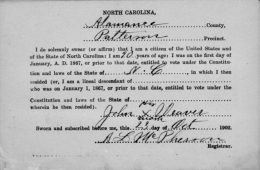 NORTH CAROLINA,
Alamance County,
Patterson Precinct.
I do solemnly swear (or affirm) that I am a citizen of the United States and
of the State of North Carolina; I am 70 years of age; I was on the first day of
January, A. D. 1867, or prior to that date, entitled to vote under the Constitu-
tion and laws of the State of N. C. in which I then
resided (or, I am a lineal descendant of
who was on January 1, 1867, or prior to that date, entitled to vote under the
Constitution and laws of the State of
wherein he then resided)
his
John X Weaver
mark
Sworn and subscribed before me, this 22 day of Oct 1902.
Registrar.